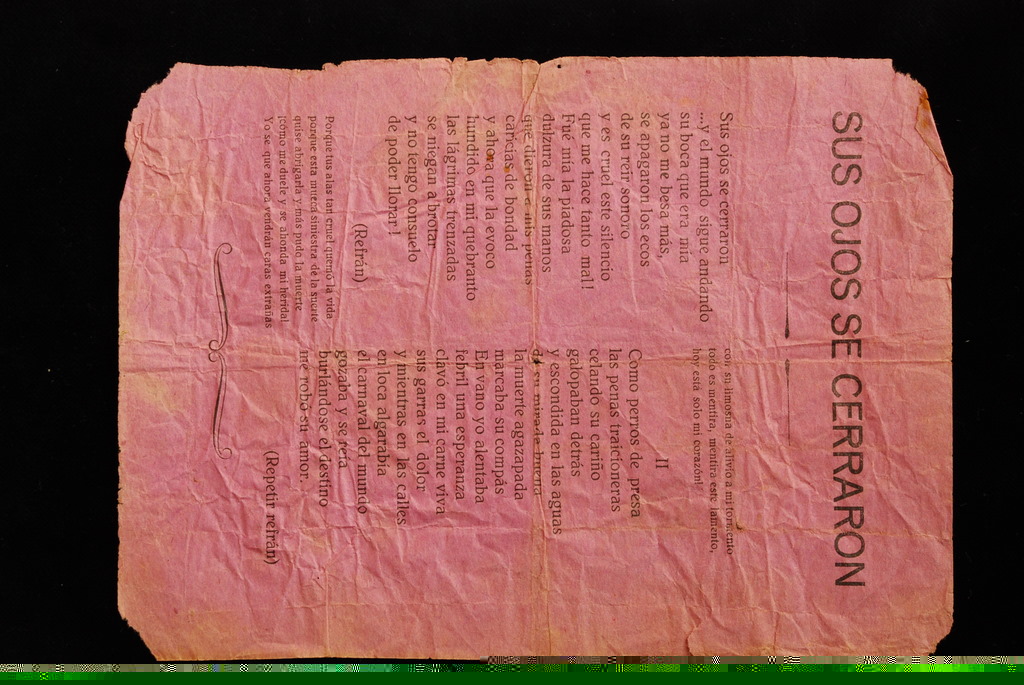 SUS OJOS SE CERRARON
Sus ojos se cerraron
...y el mundo sigue andando
su boca que era mía
ya no me besa más,
se apagaron los ecos
de su reir sonoro
y es cruel este silencio
que me hace tanto mal!
Fué mía la piadosa
dulzura de sus manos
que dieron a mis penas
caricias de bondad
y ahora que la evoco
hundido en mi quebranto
las lágrimas trenzadas
se niegan a brotar
y no tengo consuelo
de poder llorar!
(Refrán)
Porque tus alas tan cruel quemó la vida
porque esta mueca siniestra de la suerte
quise abrigarla y más pudo la muerte
¡cómo me duele y se ahonda mi herida!
Yo se que ahora vendrán caras extrañas
con su limosna de alivio a mi tormento
todo es mentira, mentira este lamento,
hoy está solo mi corazón!
II
Como perros de presa
las penas traicioneras
celando su cariño
galopaban detrás
y escondida en las aguas
de su mirada buena
la muerte agazapada
marcaba su compás
En vano yo alentaba
febril una esperanza
clavó en mi carne viva
sus garras el dolor
y mientras en las calles
en loca algarabía
el carnaval del mundo
gozaba y se reía
burlándose el destino
me robó su amor.
(Repetir refrán)